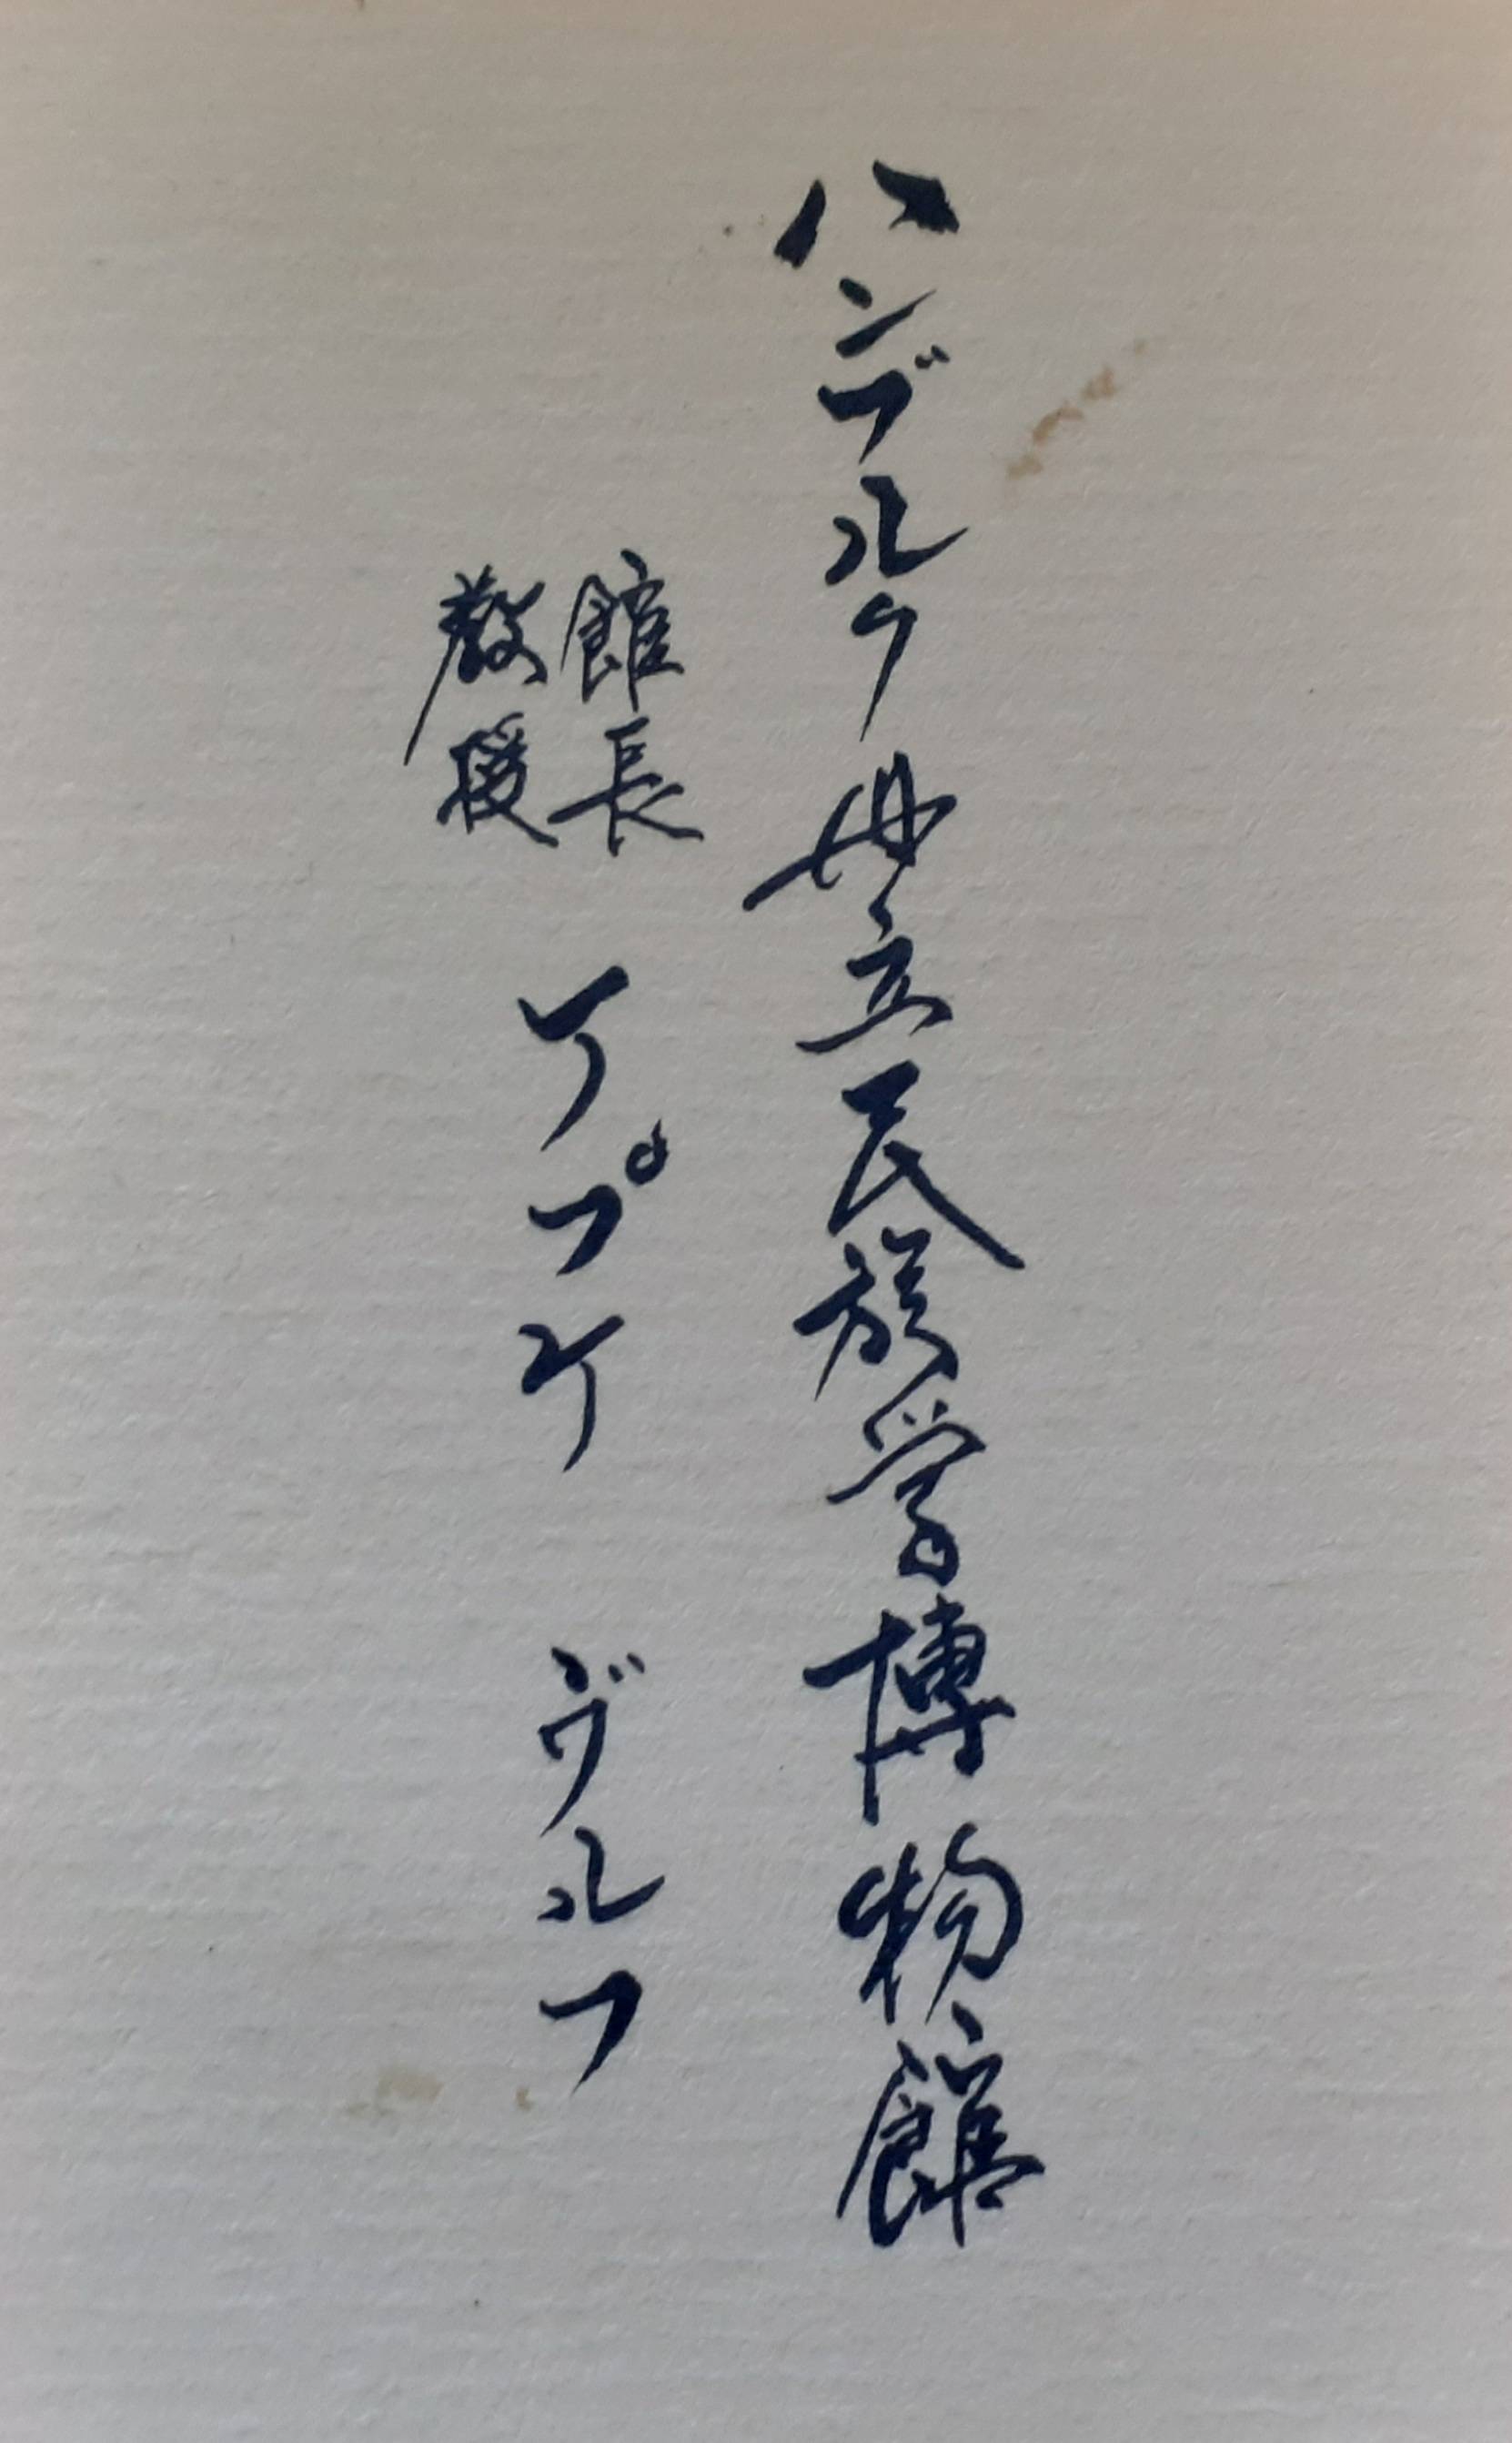 ハンブルク州立民族学博物館
館長
教授
ケプケ ヴルフ